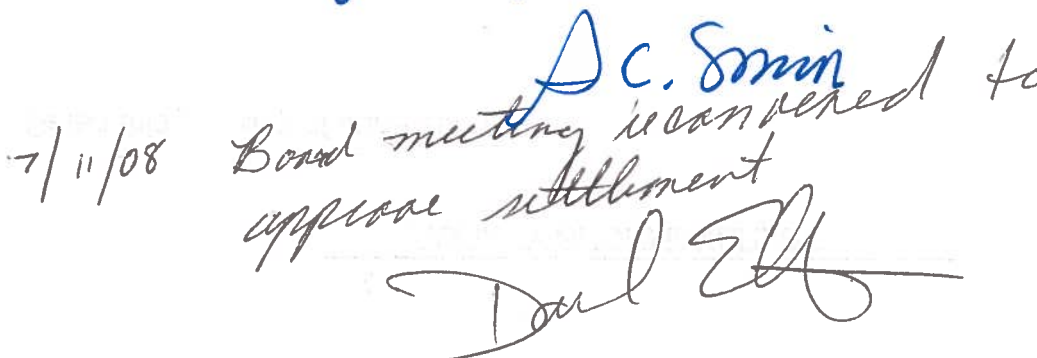 S C. Smin
7/11/08 Board meeting reconvened to
approve settlement